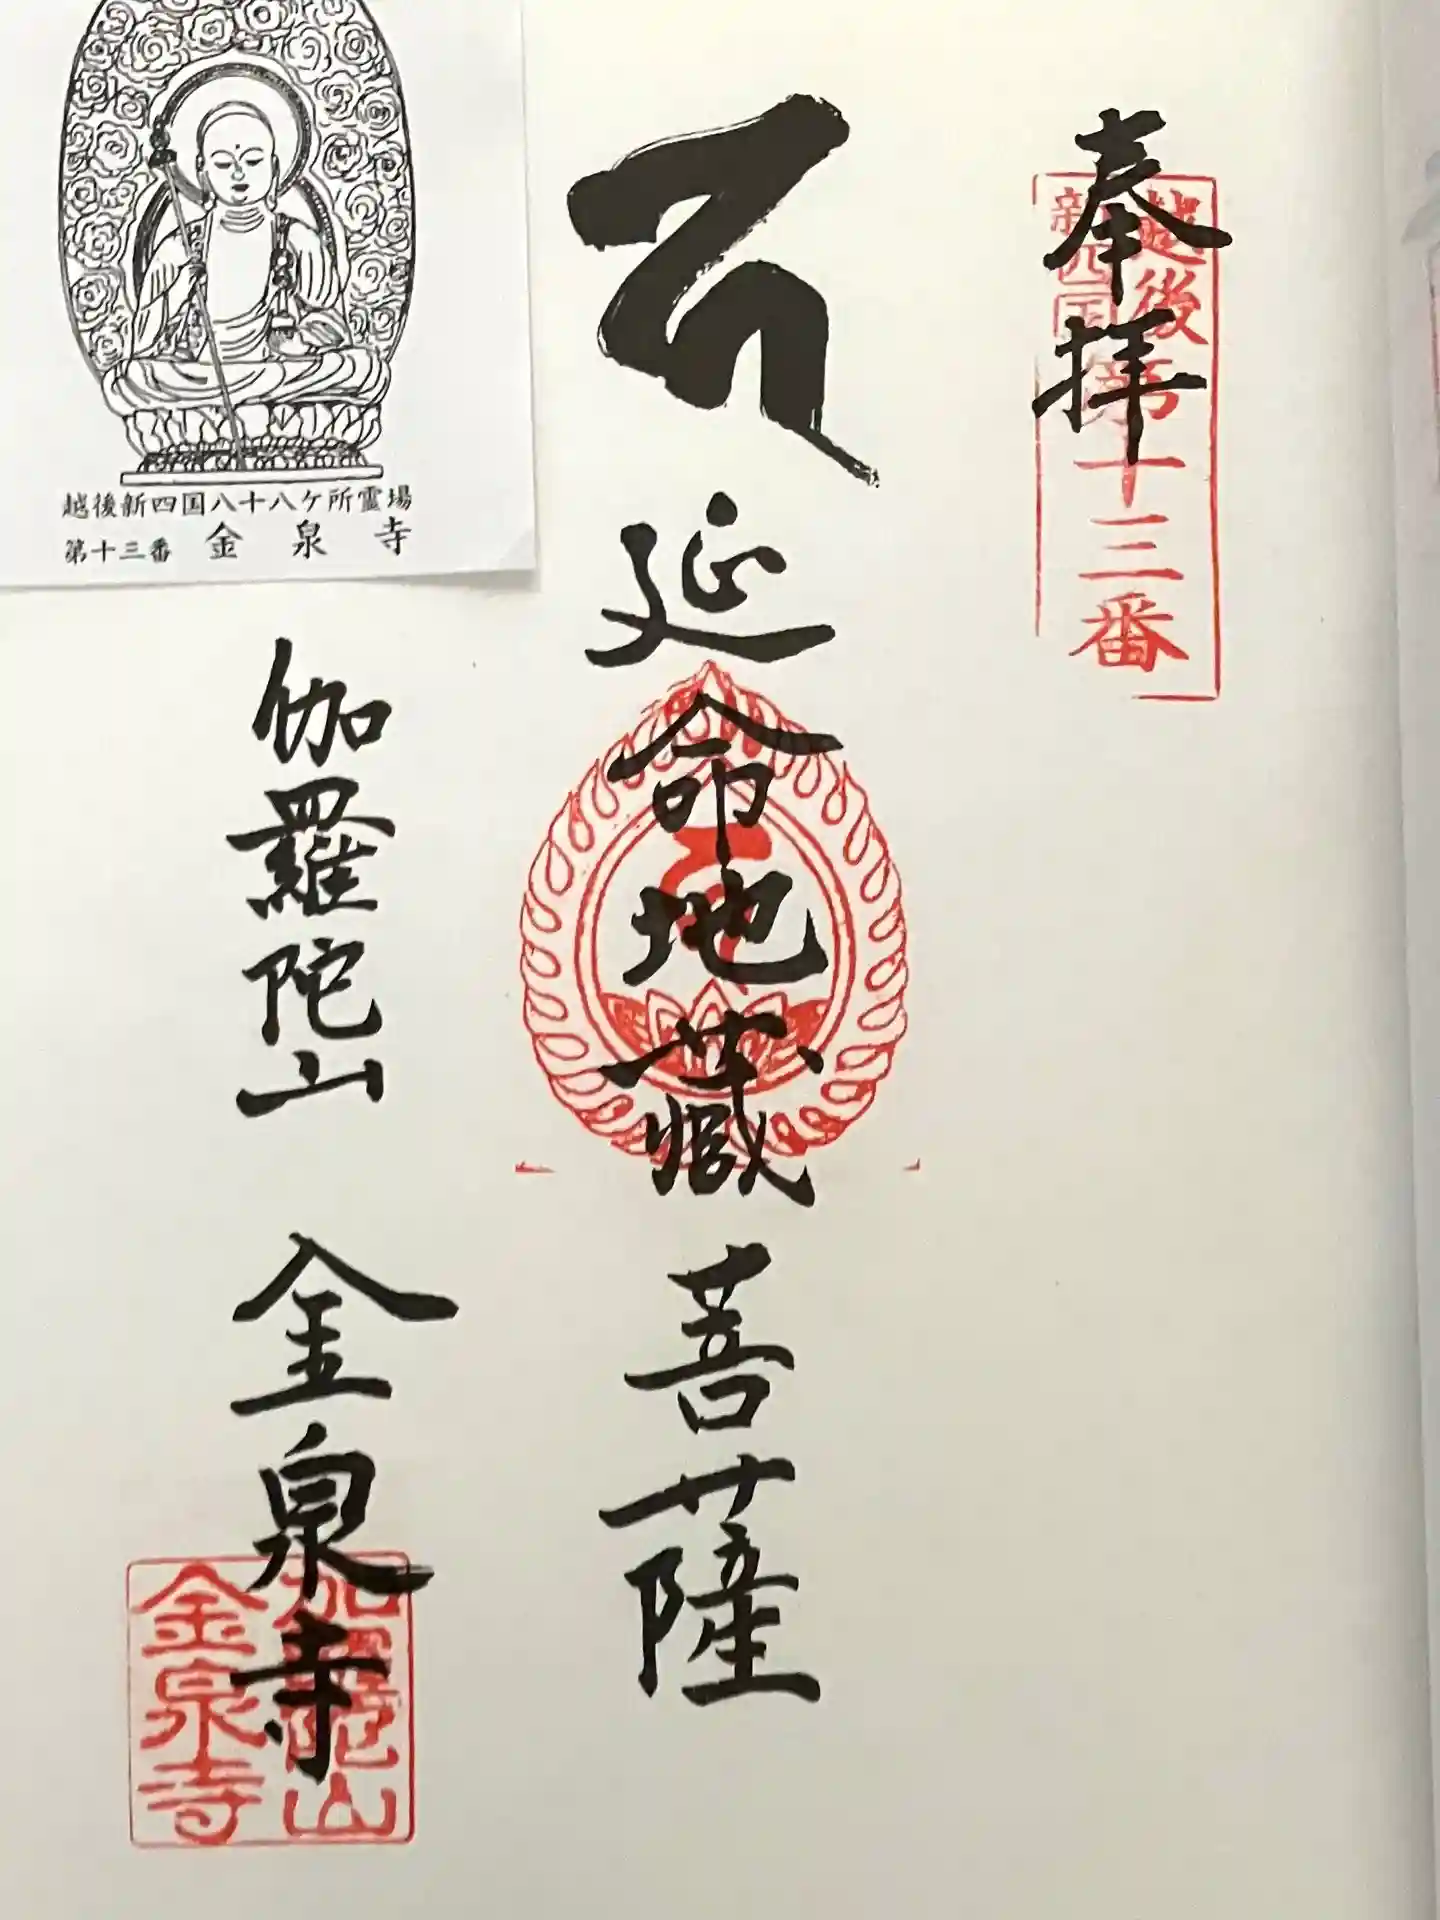 奉拝
越後
新四国
第十三番
延命地蔵菩薩
伽羅陀山 金泉寺
伽羅陀山
金泉寺
越後新四国八十八ケ所霊場
第十三番 金泉寺